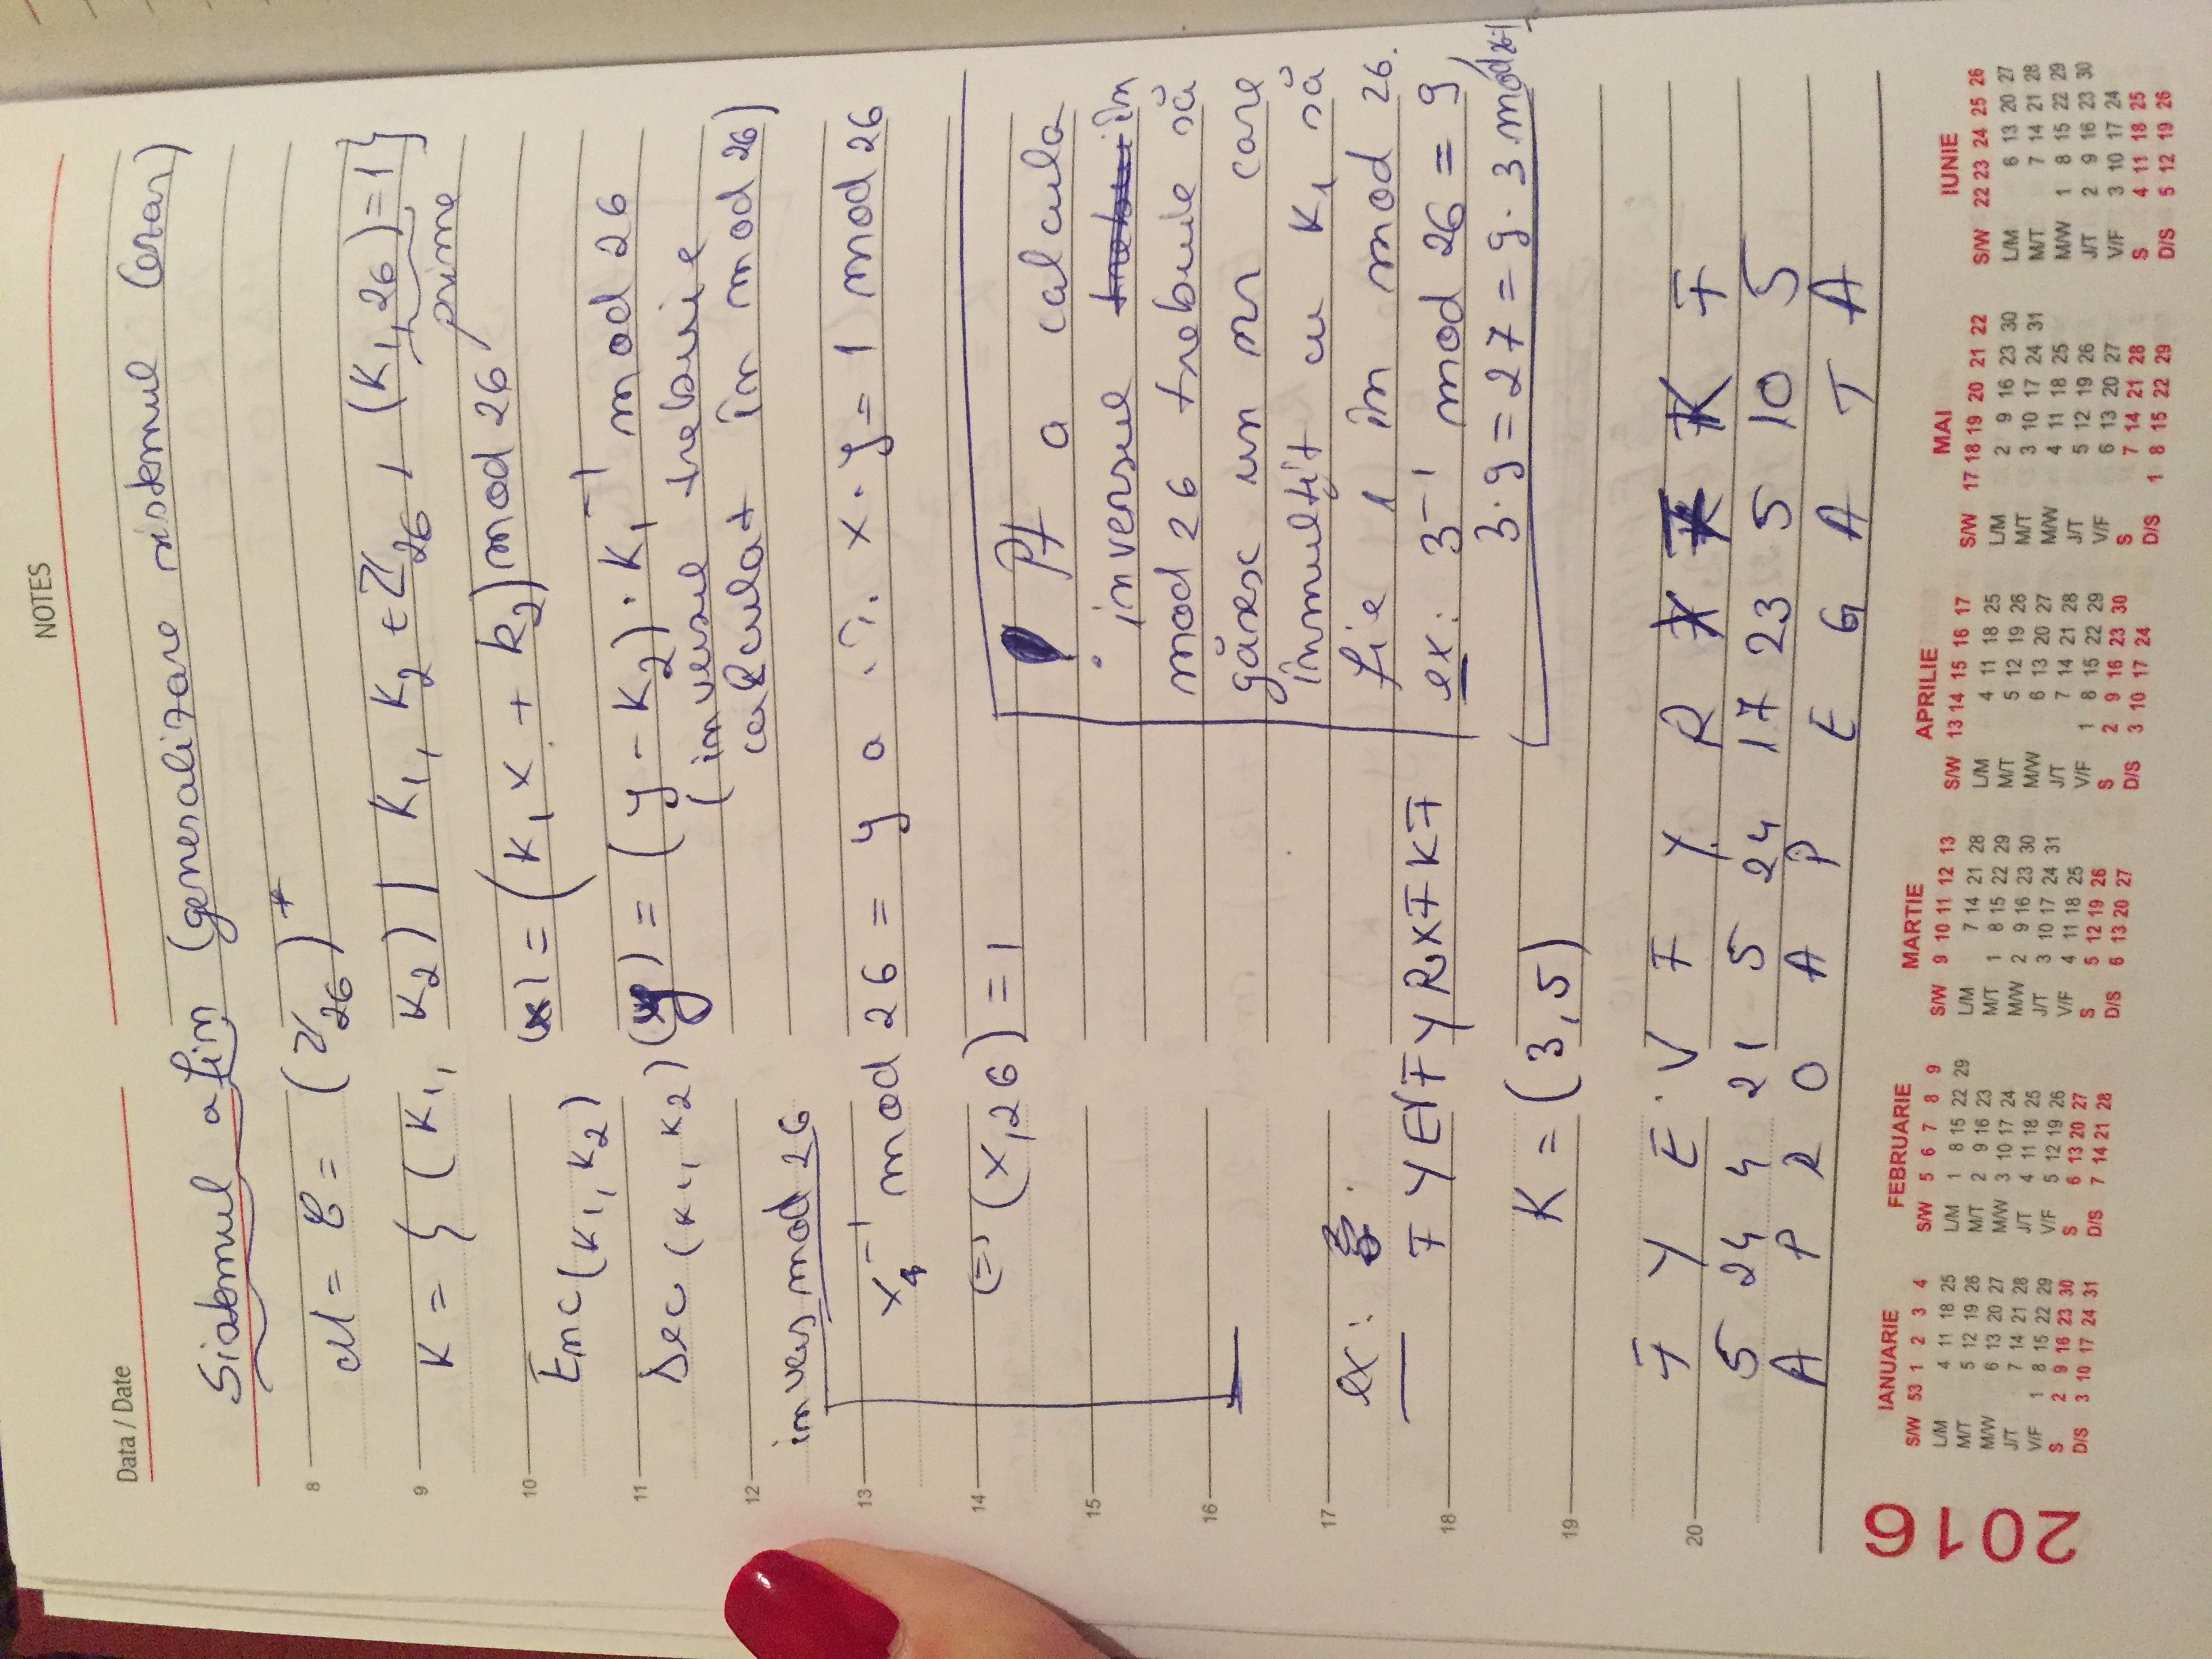 NOTES
Data / Date
Sistemul afin (generalizare sistemul Cezar)
8
M = C = (Z/26)*
9
K = { (K1, K2) | K1, K2 ∈ Z26, (K1, 26) = 1 }
prime
10
Enc(K1, K2) (x) = (K1 x + k2) mod 26
11
Dec(K1, K2) (y) = (y - K2) · K1^-1 mod 26
(inversul trebuie
12
calculat în mod 26)
invers mod 26
13
x^-1 mod 26 = y a .î. x · y = 1 mod 26
14
(=) (x, 26) = 1
! Pt a calcula
15
inversul trebui în
mod 26 trebuie să
16
găsesc un nr care
înmulțit cu K1 să
17
fie 1 în mod 26.
ex: 3^-1 mod 26 = 9,
3·9 = 27 = 9·3 mod 26=1
ex:
FYEVFYRXFKF
18
K = (3, 5)
19
F Y E V F Y R X F K F
20
5 24 4 21 5 24 17 23 5 10 5
A P R O A P E G A T A
2016
IANUARIE
S/W 53 1 2 3 4
L/M 4 11 18 25
M/T 5 12 19 26
M/W 6 13 20 27
J/T 7 14 21 28
V/F 1 8 15 22 29
S 2 9 16 23 30
D/S 3 10 17 24 31
FEBRUARIE
S/W 5 6 7 8 9
L/M 1 8 15 22 29
M/T 2 9 16 23
M/W 3 10 17 24
J/T 4 11 18 25
V/F 5 12 19 26
S 6 13 20 27
D/S 7 14 21 28
MARTIE
S/W 9 10 11 12 13
L/M 7 14 21 28
M/T 1 8 15 22 29
M/W 2 9 16 23 30
J/T 3 10 17 24 31
V/F 4 11 18 25
S 5 12 19 26
D/S 6 13 20 27
APRILIE
S/W 13 14 15 16 17
L/M 4 11 18 25
M/T 5 12 19 26
M/W 6 13 20 27
J/T 7 14 21 28
V/F 1 8 15 22 29
S 2 9 16 23 30
D/S 3 10 17 24
MAI
S/W 17 18 19 20 21 22
L/M 2 9 16 23 30
M/T 3 10 17 24 31
M/W 4 11 18 25
J/T 5 12 19 26
V/F 6 13 20 27
S 7 14 21 28
D/S 1 8 15 22 29
IUNIE
S/W 22 23 24 25 26
L/M 6 13 20 27
M/T 7 14 21 28
M/W 1 8 15 22 29
J/T 2 9 16 23 30
V/F 3 10 17 24
S 4 11 18 25
D/S 5 12 19 26